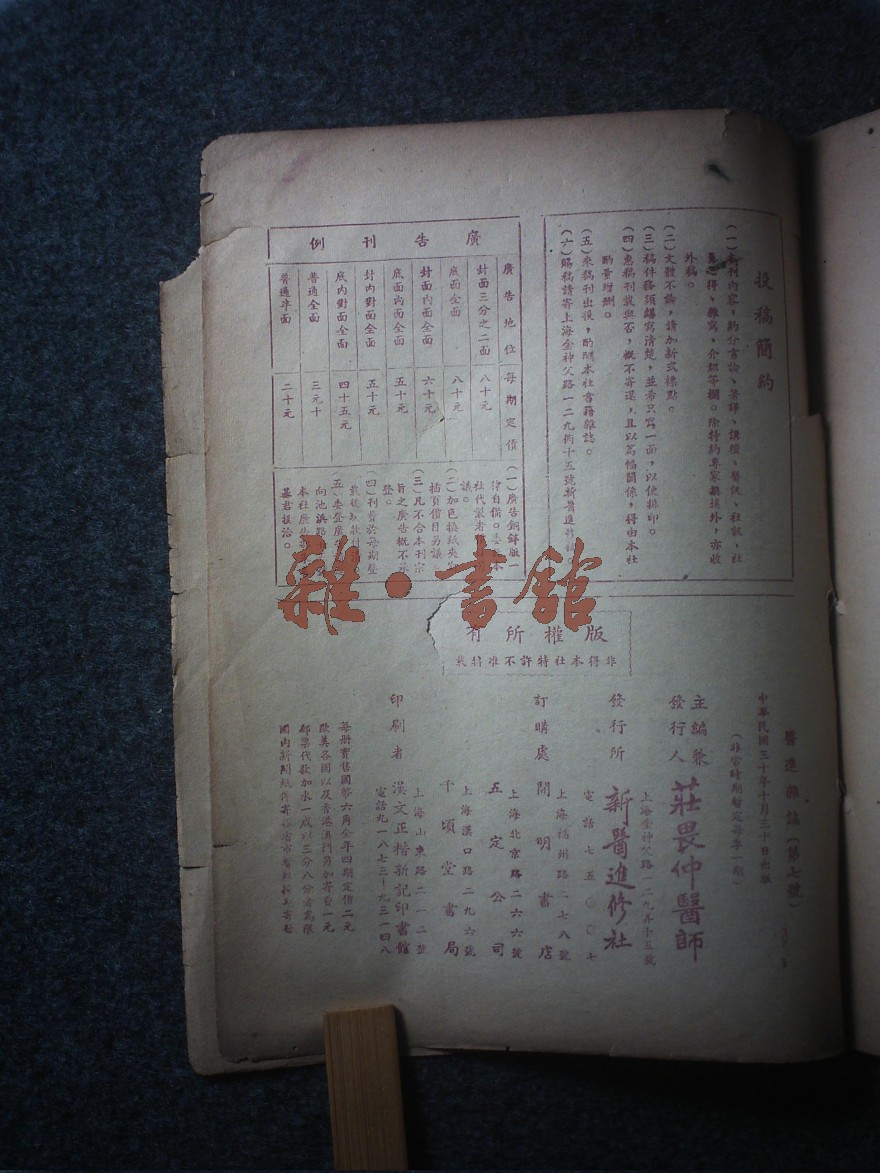 投稿簡約
(一)本刊內容，約分言論、著譯、講壇、醫訊、社訊、社
得、雜寫、介紹等欄。除特約專家撰述外，亦收
外稿。
(二)文體不論，請加新式標點。
(三)稿件務須繕寫清楚，並希只寫一面，以便排印。
(四)惠稿刊載與否，概不寄還，且以篇幅關係，得由本社
酌量增刪。
(五)來稿刊出後，酌贈本社書籍雜誌。
(六)賜稿請寄上海金神父路一二九衖十五號新醫進修社
廣告刊例
廣告地位 每期定價
封面三分之二面 八十元
底面全面 八十元
封面內面全面 六十元
底面內面全面 五十元
封內對面全面 五十元
底內對面全面 四十五元
普通全面 三元十
普通半面 二十元
(一)廣告銅鋅版一
律自備。委本
社代製者
議。
(二)加色換紙夾
插頁價目另議
(三)凡不合本刊宗
旨之廣告概不承
登。
(四)刊費於每期登
(五)委登廣
向池浜路
本社廣告
君接洽。
雜·書館
版權所有
非得本社特許不准轉載
醫進雜誌(第七號)
中華民國三十年十月三十日出版
(非常時期暫定每季一期)
主編兼發行人 莊畏仲醫師
上海金神父路一二九弄十五號
發行所 新醫進修社
電話七五〇〇七
訂購處 開明書店
上海福州路二七八號
五定公司
上海北京路二六六號
千頃堂書局
上海漢口路二九六號
印刷者 漢文正楷新記印書館
上海山東路二一二號
電話九一八七三—九三一四八
每冊實售國幣六角全年四期定價二元
歐美各國以及香港澳門另加寄費一元
郵票代款加水一成以三分八分者為限
國內新聞紙